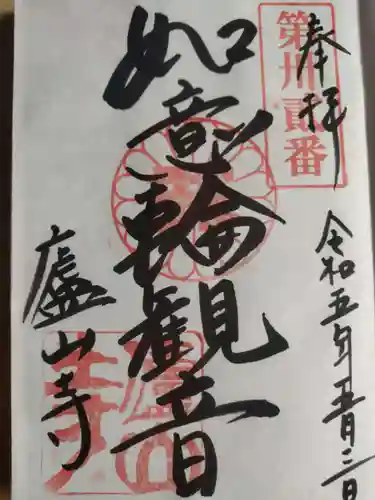 奉拝
第卅貳番
令和五年五月二日
如意輪観音
廬山寺